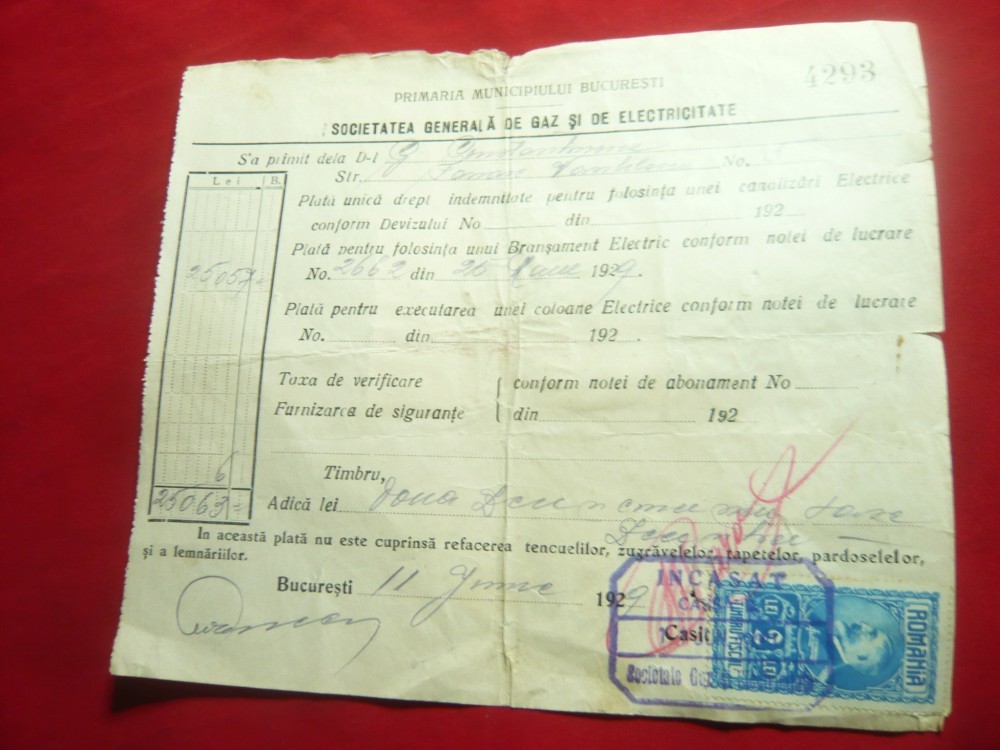 4293
PRIMARIA MUNICIPIULUI BUCUREȘTI
SOCIETATEA GENERALĂ DE GAZ ȘI DE ELECTRICITATE
S'a primit dela D-l G Constantinescu
Str. No.
Lei B.
Plată unică drept indemnitate pentru folosința unei canalizări Electrice
conform Devizului No din 192
Plată pentru folosința unui Branșament Electric conform notei de lucrare
25057=
No. 2662 din 26 1929.
Plată pentru executarea unei coloane Electrice conform notei de lucrare
No. din 192 .
Taxa de verificare conform notei de abonament No
Furnizarea de siguranțe din 192
6
Timbru,
25063= Adică lei Doua Zeci
In această plată nu este cuprinsă refacerea tencuelilor, zugrăvelelor, tapetelor, pardoselelor,
și a lemnăriilor.
București 11 Junie 1929
INCASAT
Casit
Societate
ROMANIA
TIMBRU FISCAL